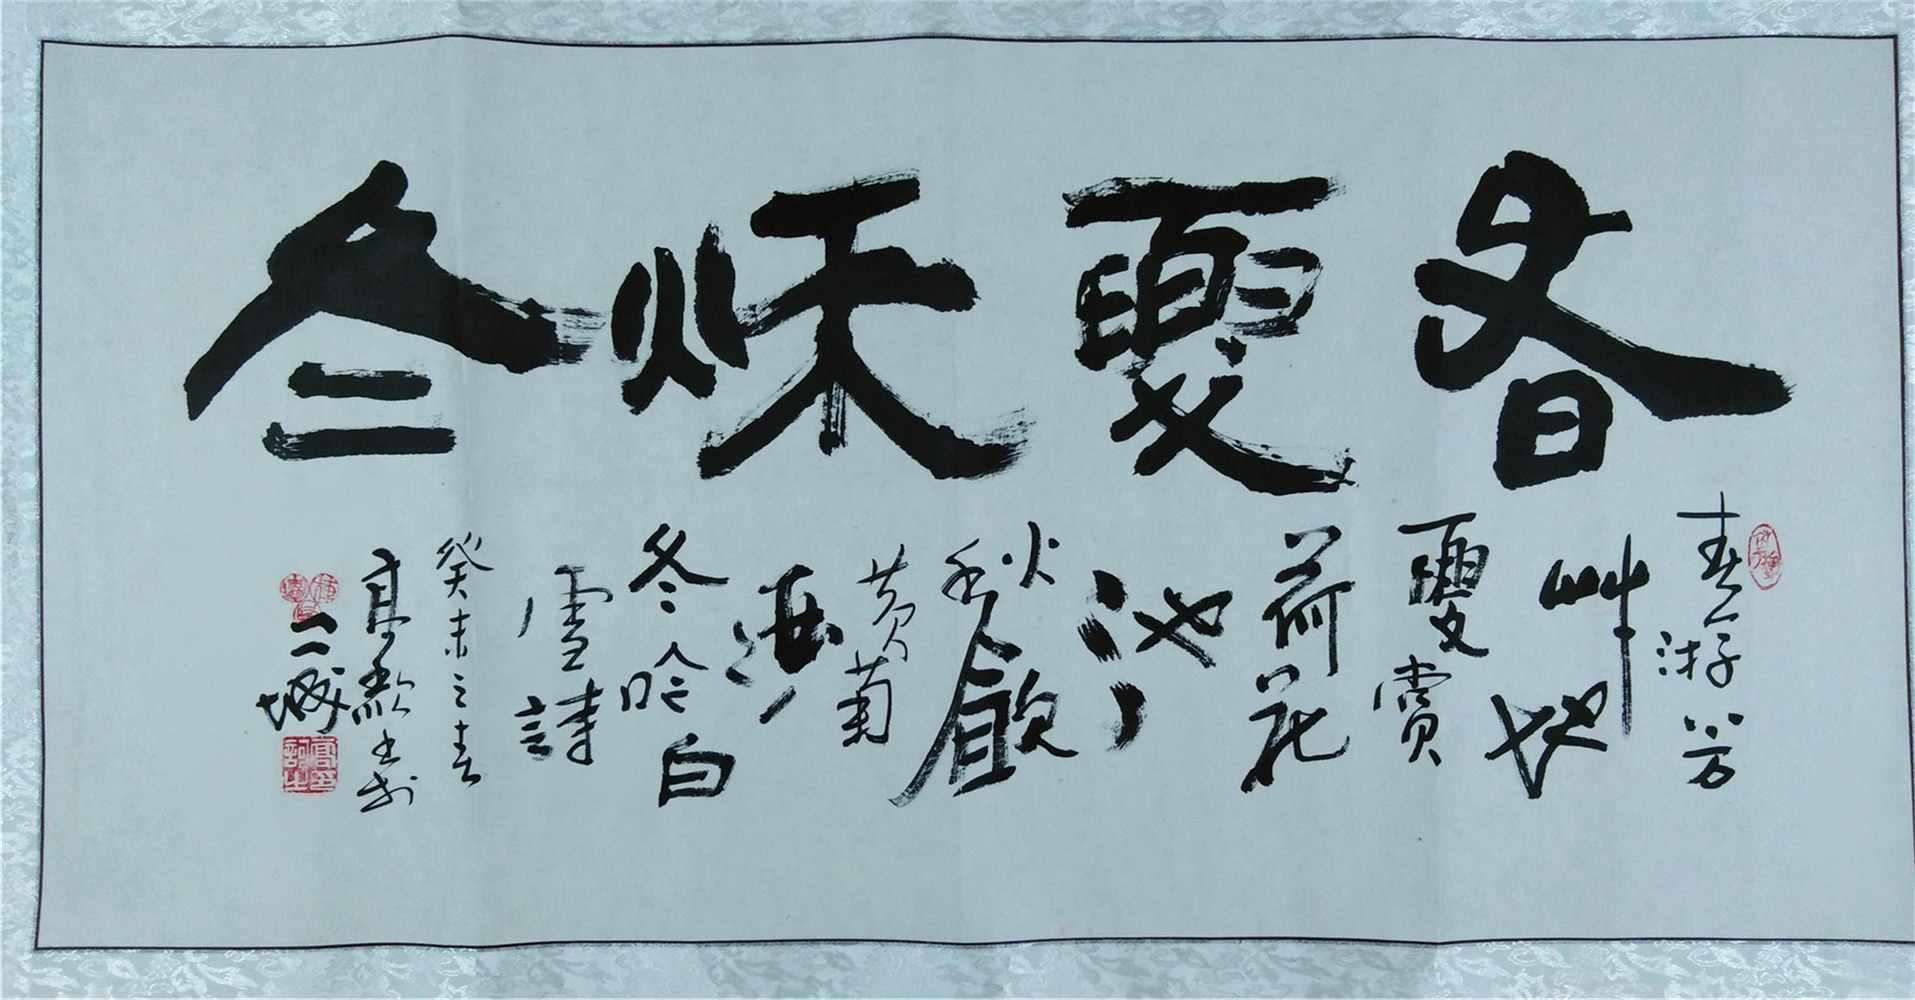 春夏秋冬
春游芳
艸地
夏賞
荷花
池
秋飲
黄菊
酒
冬吟白
雪詩
癸未之春
二城